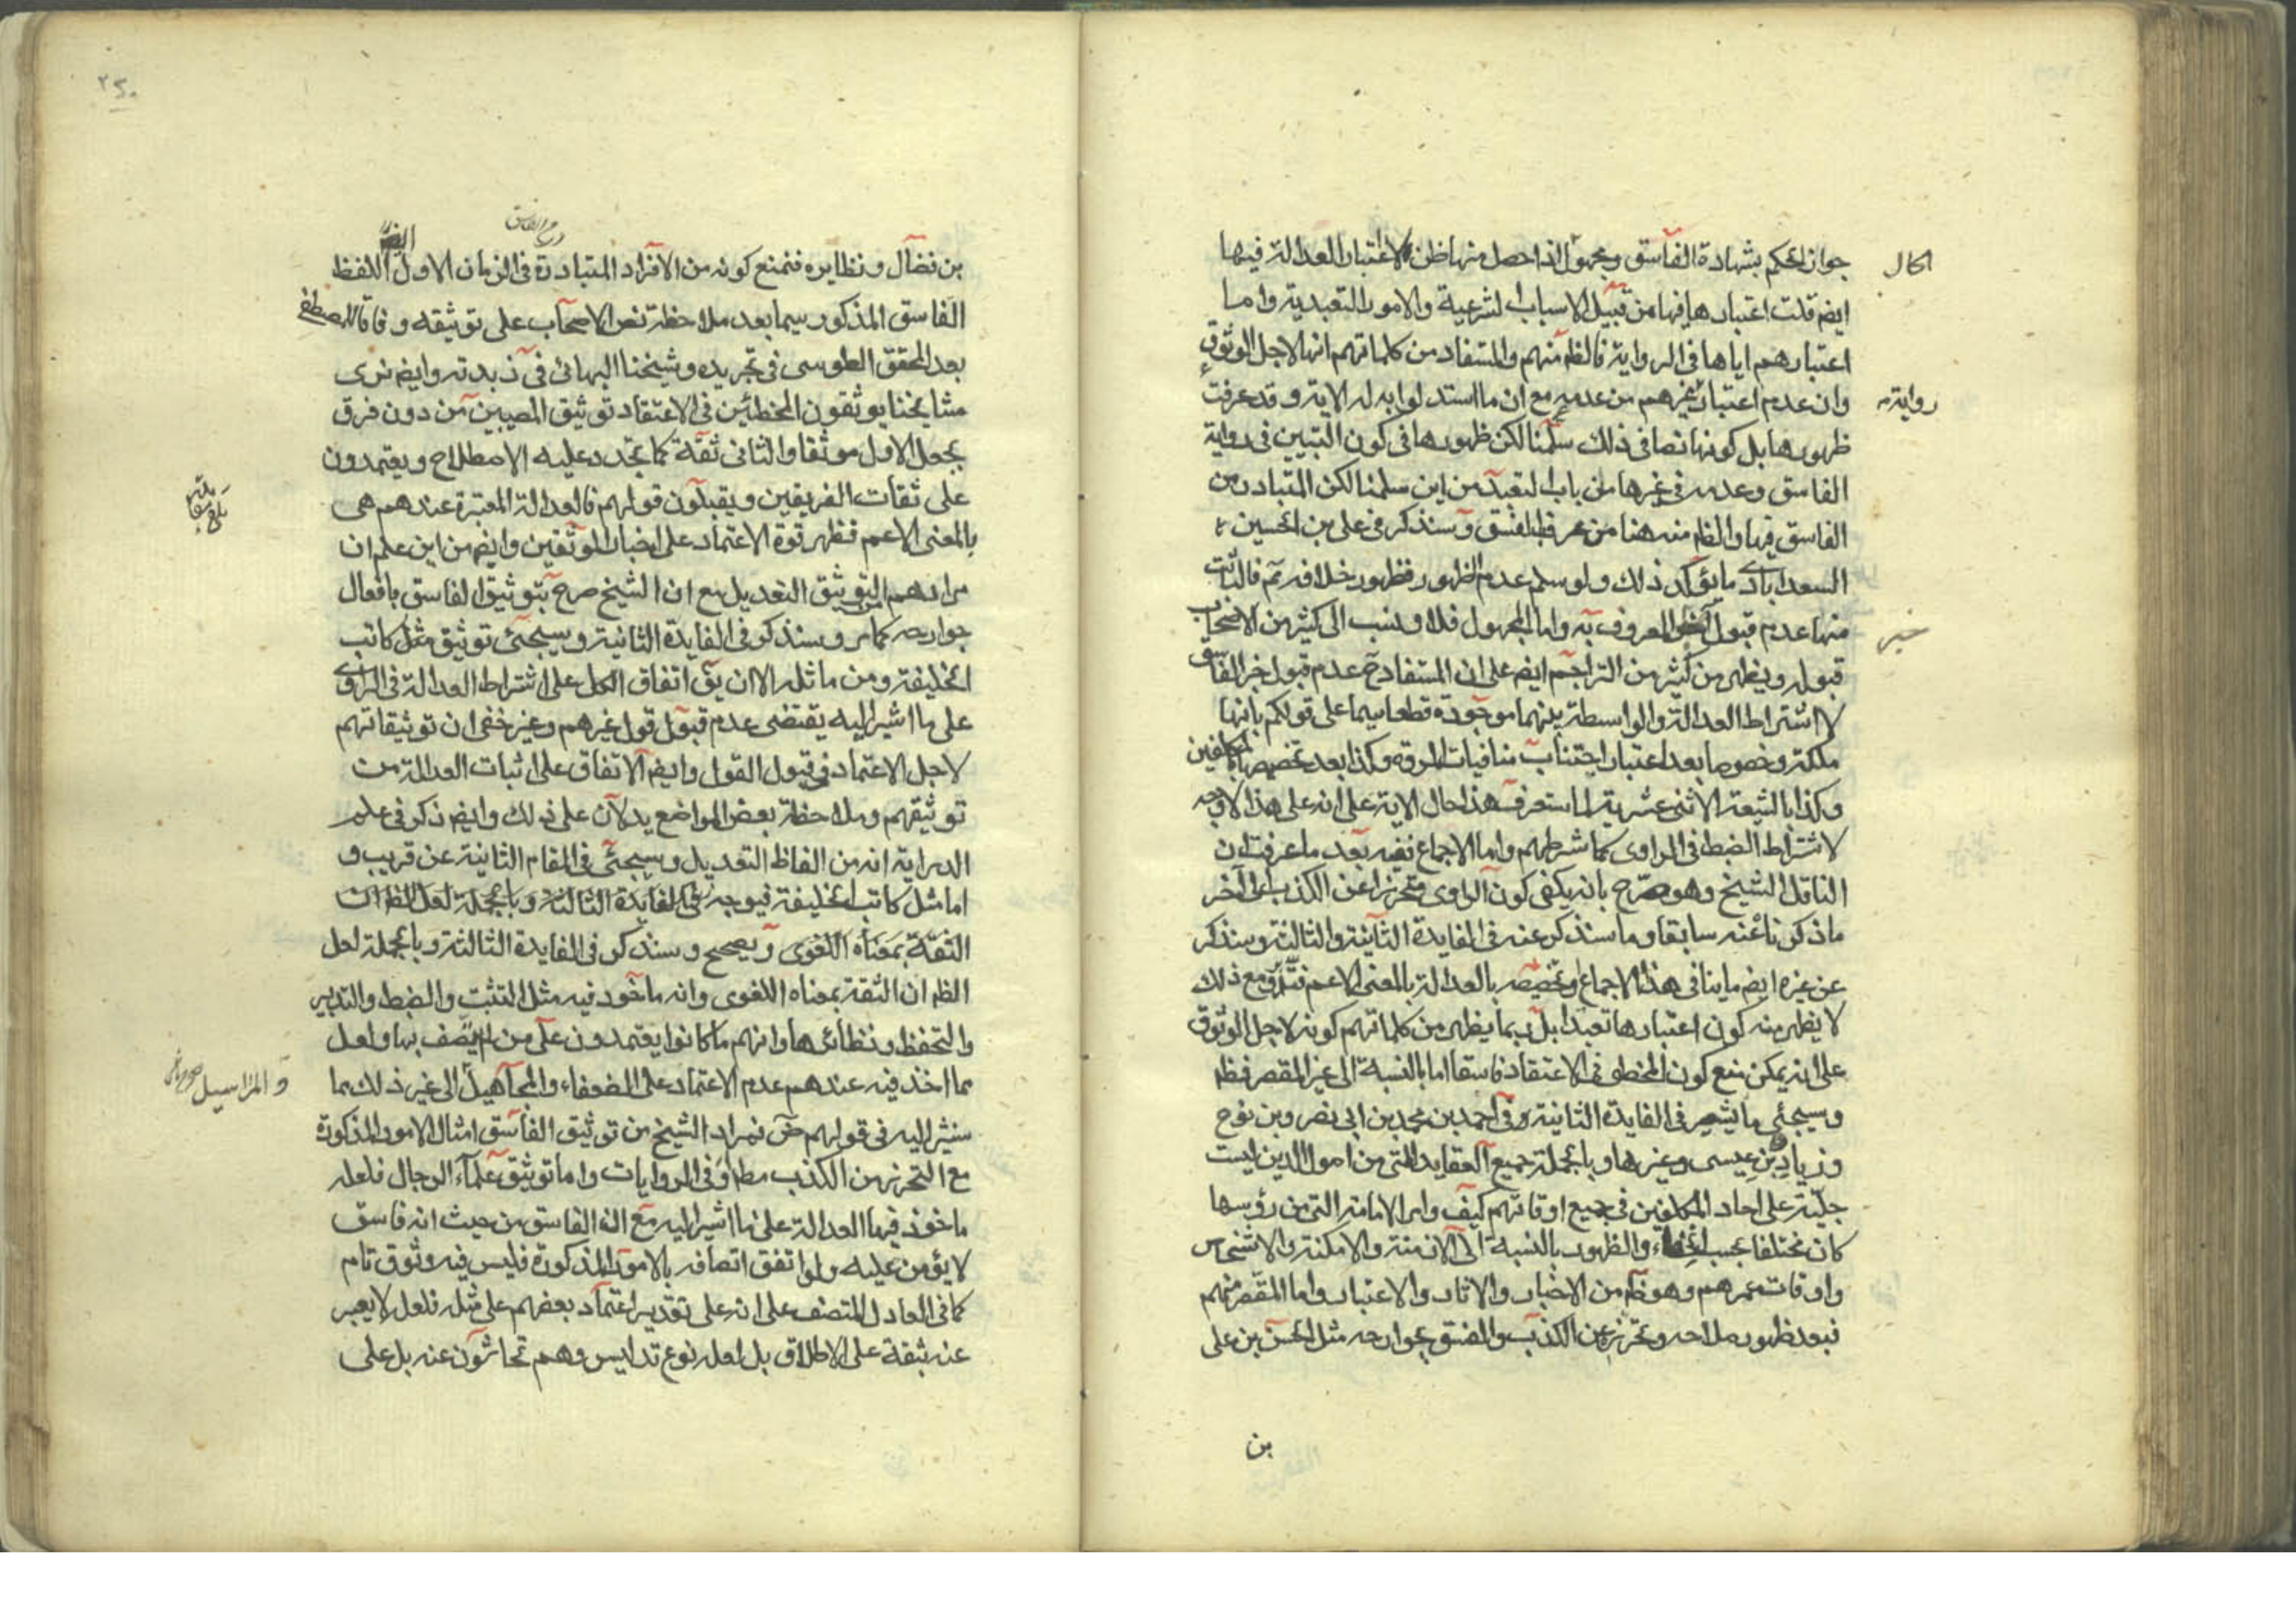 جواز الحكم بشهادة الفاسق ومجهول الحال اذا حصل منها ظن لاعتبار العدالة فيها
ايض قلت اعتبارها فيها من قبيل الاسباب الشرعية والامور التعبدية واما
اعتبارهم اياها في الرواية فالظ منهم والمستفاد من كلماتهم انها لاجل الوثوق
وان عدم اعتبار غيرهم من عدمه مع ان ما استدلوا به له الاية وقد عرفت
ظهورها بل كونها نصا في ذلك سلمنا لكن ظهورها في كون التبين في رواية
الفاسق وعدمه في غيرها من باب التعبد من اين سلمنا لكن المتبادر من
الفاسق فيها والظ منه هنا من عرف بالفسق وسنذكر في علي بن الحسين
السعدابادي ما يؤكد ذلك ولو سلم عدم الظهور فظهور خلافه ثم فالثابت
منها عدم قبول خبر المعروف به واما المجهول فلا ونسب الى كثير من الاصحاب
قبوله ويظهر من كثير من التراجم ايض على ان المستفاد ح عدم قبول خبر الفاسق
لا اشتراط العدالة والواسطة بينهما موجودة قطعا سيما على قولكم بانها
ملكة وخصوصا بعد اعتبار اجتناب منافيات المروة وكذا بعد تخصيصها بالمكلفين
وكذا بالشيعة الاثنى عشرية لما ستعرف هذا حال الاية على انه على هذا لا وجه
لاشتراط الضبط في الراوي كما شرطهم واما الاجماع ففيه بعد ما عرفت ان
الناقل الشيخ وهو صرح بانه يكفي كون الراوي متحرزا عن الكذب الى اخر
ما ذكرنا عنه سابقا وما سنذكر عنه في الفايدة الثانية والثالثة وسنذكر
عن غيره ايض ما ينافي هذا الاجماع وتخصيصه بالعدالة بالمعنى الاعم فتدبر ومع ذلك
لا يظهر منه كون اعتبارها تعبدا بل ربما يظهر من كلماتهم كونه لاجل الوثوق
على انه يمكن منع كون المخطي في الاعتقاد فاسقا اما بالنسبة الى غير المقصر فظ
وسيجئي ما يشير في الفايدة الثانية وفي احمد بن محمد بن ابي نصر وبن نوح
وزياد بن عيسى وغيرها وبالجملة جميع العقايد التي من اصول الدين ليست
جلية على احاد المكلفين في جميع اوقاتهم كيف وامر الامامة التي من رؤسها
كان مختلفا بحسب الخفاء والظهور بالنسبة الى الازمنة والامكنة والاشخاص
واوقات عمرهم وهو ظ من الاخبار والاثار والاعتبار واما المقصر منهم
فبعد ظهور صلاحه وتحرزه عن الكذب والفسق بجوارحه مثل الحسن بن علي
بن
الحال
رواية
خبر
٢٥٠
بن فضال ونظايره فنمنع كونه من الافراد المتبادرة في الزمان الاول اللفظ
الفاسق المذكور سيما بعد ملاحظة نص الاصحاب على توثيقه وفاقا للمصطفى
بعد المحقق الطوسي في تجريده وشيخنا البهائي في زبدته وايض نرى
مشايخنا يوثقون المخطئين في الاعتقاد توثيق المصيبين من دون فرق
بجعل الاول موثقا والثاني ثقة كما تجدد عليه الاصطلاح ويعتمدون
على ثقات الفريقين ويقبلون قولهم فالعدالة المعتبرة عندهم هي
بالمعنى الاعم فظهر قوة الاعتماد على اخبار الموثقين وايض من اين علم ان
مرادهم التوثيق التعديل مع ان الشيخ صرح بتوثيق الفاسق بافعال
جوارحه كما مر وسنذكر في الفايدة الثانية وسيجئي توثيق مثل كاتب
الخليفة ومن ماثله الا ان يق اتفاق الكل على اشتراط العدالة في الراوي
على ما اشير اليه يقتضي عدم قبول قول غيرهم وغير خفي ان توثيقاتهم
لاجل الاعتماد في قبول القول وايض الاتفاق على اثبات العدالة من
توثيقهم وملاحظة بعض المواضع يدلان على ذلك وايض ذكر في علم
الدراية انه من الفاظ التعديل وسيجئي في المقام الثانية عن قريب و
اما مثل كاتب الخليفة فيوجه في الفايدة الثالثة وبالجملة لعل الظ ان
الثقة بمعناه اللغوي ويصحح وسنذكر في الفايدة الثالثة وبالجملة لعل
الظ ان الثقة بمعناه اللغوي وانه ماخوذ فيه مثل التثبت والضبط والتدبير
والتحفظ ونظائرها وانهم ما كانوا يعتمدون على من لم يتصف بها ولعل
مما اخذ فيه عندهم عدم الاعتماد على الضعفاء والمجاهيل الى غير ذلك مما
سنشير اليه في قولهم ض فمراد الشيخ من توثيق الفاسق امثال الامور المذكورة
مع التحرز من الكذب مط او في الروايات واما توثيق علماء الرجال فلعله
ماخوذ فيها العدالة على ما اشير اليه مع ان الفاسق من حيث انه فاسق
لا يؤمن عليه ولو اتفق اتصافه بالامور المذكورة فليس فيه وثوق تام
كما في العادل المتصف على انه على تقدير اعتماد بعضهم على مثله فلعله لا يعبر
عنه بثقة على الاطلاق بل لعله نوع تدليس وهم تحاشون عنه بل على
والمراسيل